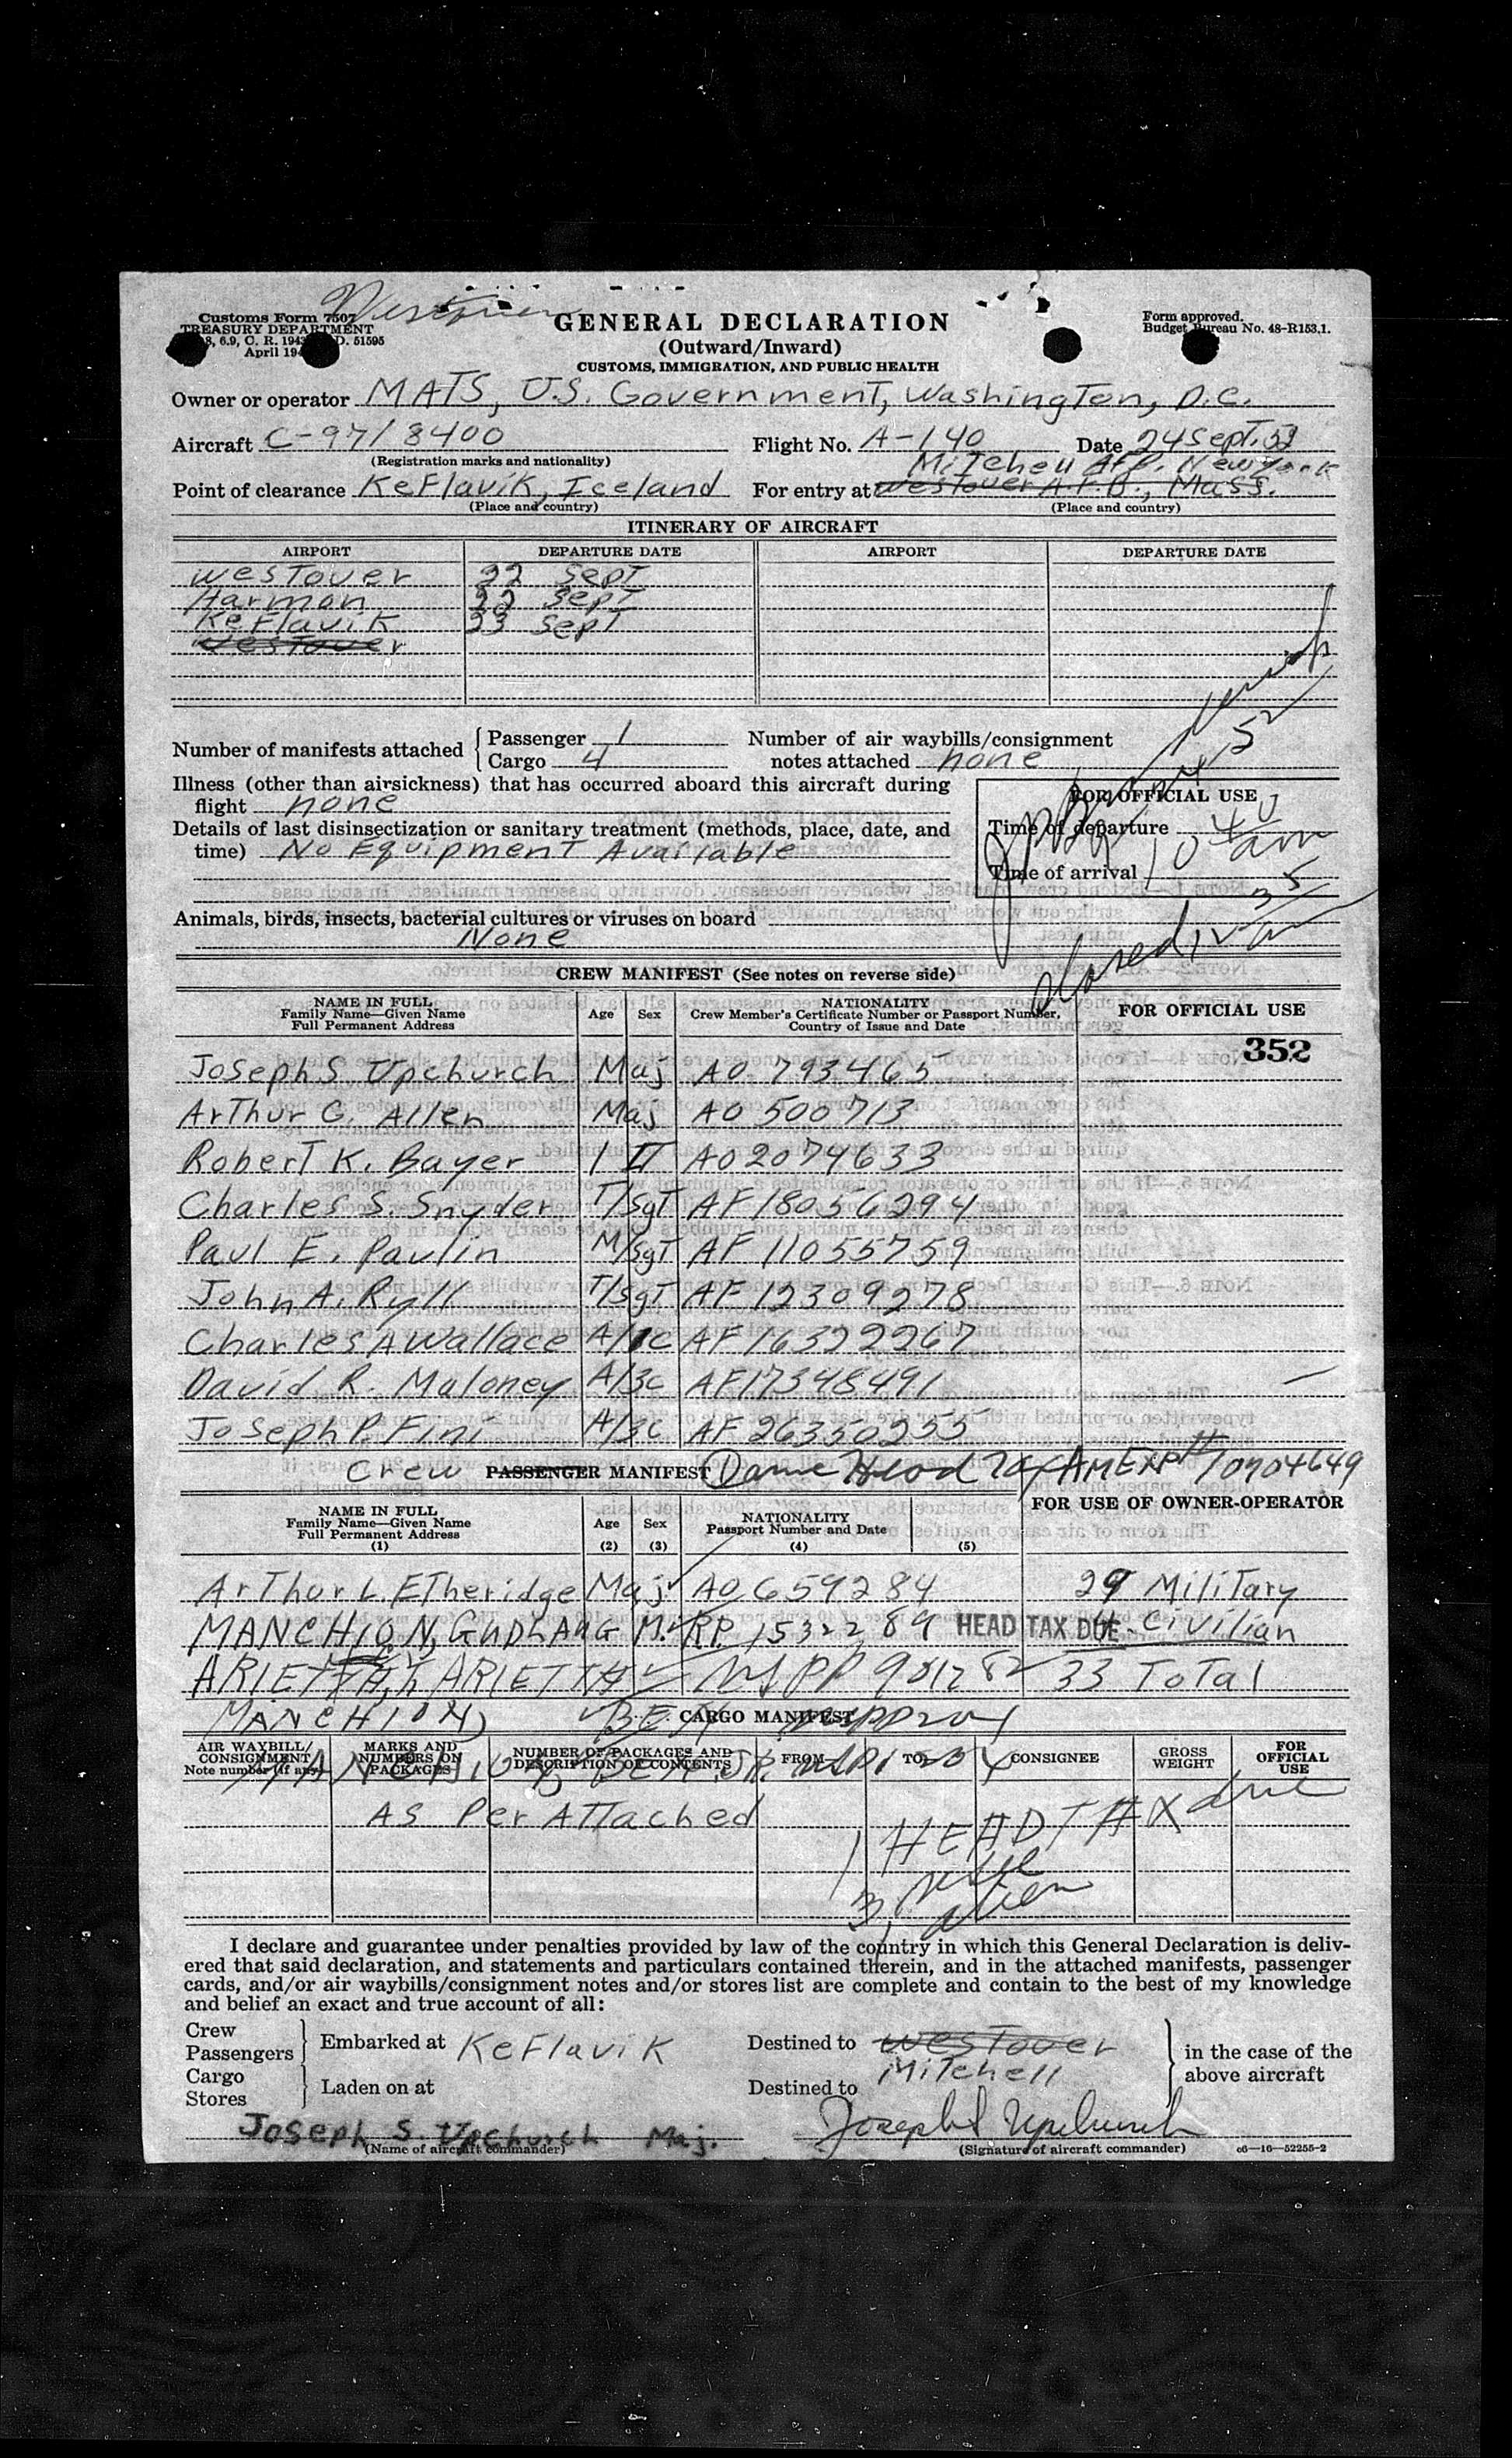 Customs Form 7507
TREASURY DEPARTMENT
April
GENERAL DECLARATION
(Outward/Inward)
CUSTOMS, IMMIGRATION, AND PUBLIC HEALTH
Form approved.
Budget Bureau No. 48-R153.1.
Owner or operator MATS, U.S. Government, Washington, D.C.
Aircraft C-97/8400 Flight No. A-140 Date 24 Sept. 52
(Registration marks and nationality)
Mitchell AFB. New York
Point of clearance Keflavik, Iceland For entry at Westover A.F.B., Mass.
(Place and country) (Place and country)
ITINERARY OF AIRCRAFT
AIRPORT DEPARTURE DATE AIRPORT DEPARTURE DATE
Westover 22 Sept
Harmon 22 Sept
Keflavik 23 Sept
Westover
Number of manifests attached { Passenger 1
Cargo 4
Number of air waybills/consignment
notes attached none
Illness (other than airsickness) that has occurred aboard this aircraft during
flight none
Details of last disinsectization or sanitary treatment (methods, place, date, and
time) No Equipment Available
FOR OFFICIAL USE
Time of departure
Time of arrival 10 40 am
Animals, birds, insects, bacterial cultures or viruses on board
None
CREW MANIFEST (See notes on reverse side)
NAME IN FULL
Family Name—Given Name
Full Permanent Address
Age Sex
NATIONALITY
Crew Member's Certificate Number or Passport Number,
Country of Issue and Date
FOR OFFICIAL USE
352
Joseph S Upchurch Maj AO 793465
Arthur G. Allen Maj AO 500713
Robert K. Bayer 1 LT AO 2074633
Charles S. Snyder T/Sgt AF 18056294
Paul E. Paulin M/Sgt AF 11055759
John A. Ryll T/Sgt AF 12309278
Charles A Wallace A/1C AF 16322267
David R. Maloney A/3c AF17348491
Joseph P. Fini A/3c AF 26350255
Crew PASSENGER MANIFEST
NAME IN FULL
Family Name—Given Name
Full Permanent Address
(1)
Age
(2)
Sex
(3)
NATIONALITY
Passport Number and Date
(4) (5)
FOR USE OF OWNER-OPERATOR
Arthur L Etheridge Maj. AO 659284 29 Military
MANCHION, GUDLAUG M. RP. 1532289 HEAD TAX DUE Civilian
33 Total
MANCHION,
CARGO MANIFEST
AIR WAYBILL/
CONSIGNMENT
Note number (if any)
MARKS AND
NUMBERS ON
PACKAGES
NUMBER OF PACKAGES AND
DESCRIPTION OF CONTENTS
FROM— TO— CONSIGNEE
GROSS
WEIGHT
FOR
OFFICIAL
USE
As Per Attached
1 HEAD TAX due
I declare and guarantee under penalties provided by law of the country in which this General Declaration is deliv-
ered that said declaration, and statements and particulars contained therein, and in the attached manifests, passenger
cards, and/or air waybills/consignment notes and/or stores list are complete and contain to the best of my knowledge
and belief an exact and true account of all:
Crew
Passengers } Embarked at Keflavik Destined to Westover
Mitchell
Cargo
Stores } Laden on at Destined to
} in the case of the
above aircraft
Joseph S. Upchurch Maj. Joseph S Upchurch
(Name of aircraft commander) (Signature of aircraft commander) c6—16—52255-2